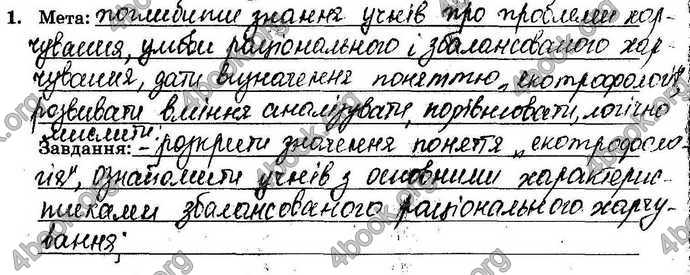 1. Мета: поглибити знання учнів про проблеми хар-
чування, умови раціонального і збалансованого хар-
чування, дати визначення поняттю „екотрофологія",
розвивати вміння аналізувати, порівнювати, логічно
мислити;
Завдання: – розкрити значення поняття „екотрофоло-
гія", ознайомити учнів з основними характерис-
тиками збалансованого раціонального харчу-
вання;